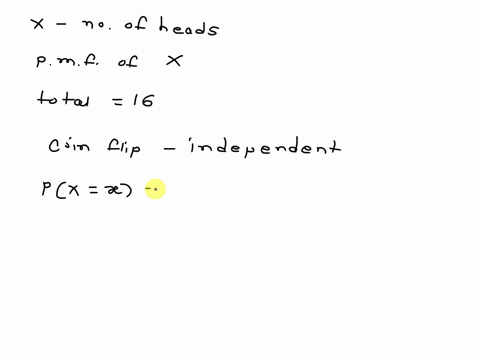 x - no. of heads
p.m.f. of X
total = 16
Coin flip - independent
P(X = x) -